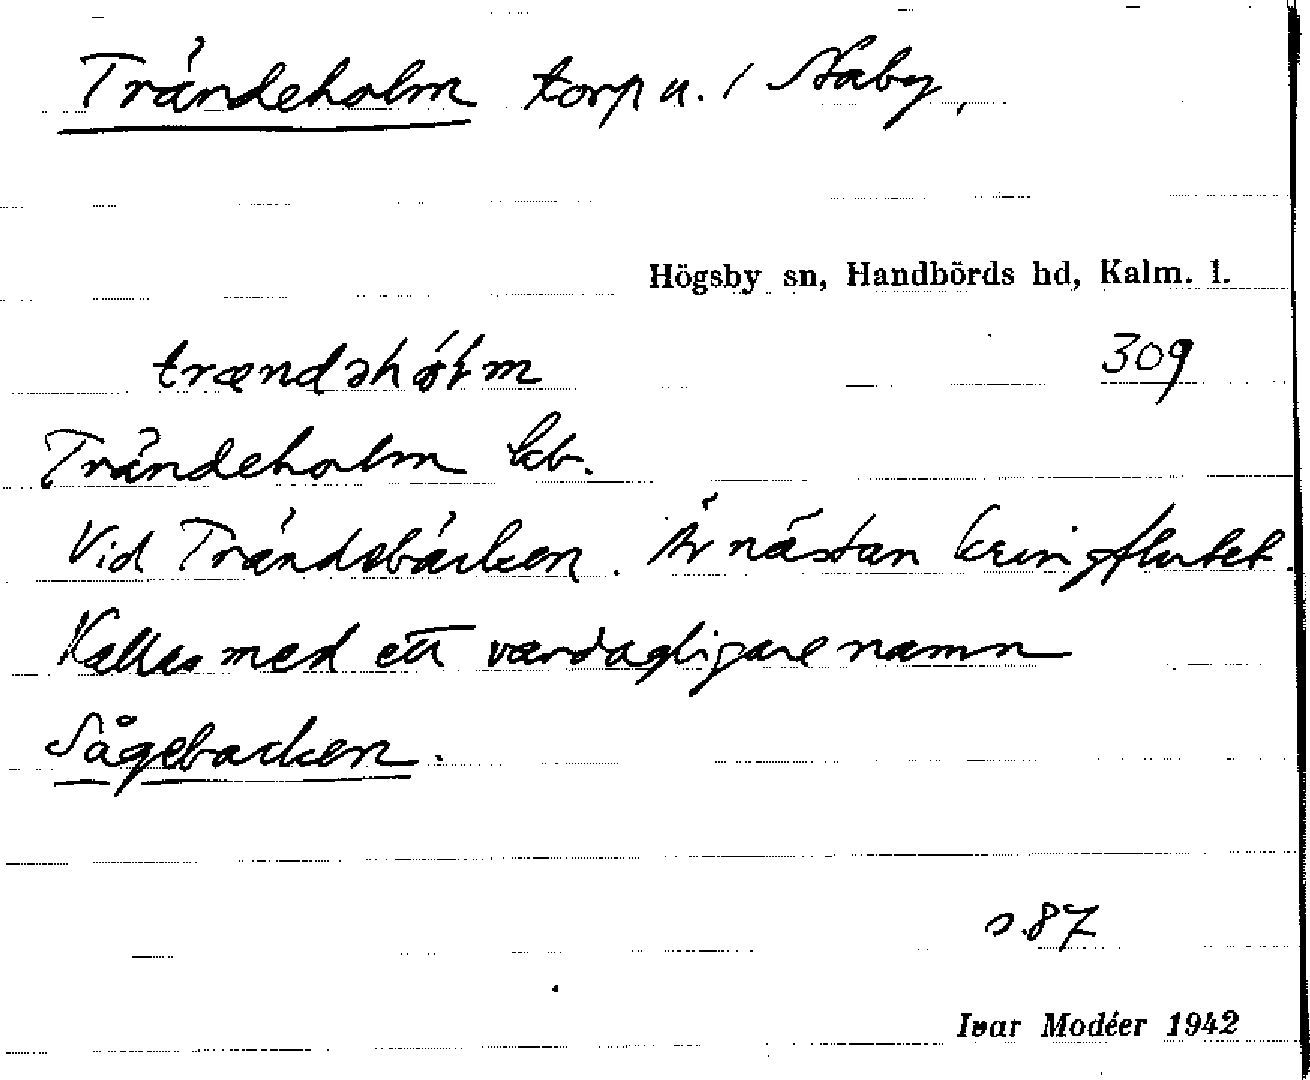 Trändeholm torp u. / Staby,
Högsby sn, Handbörds hd, Kalm. l.
309
Trändeholm kb.
Vid Trändebäcken. Är nästan kringflutet.
Kallas med ett vardagligare namn
Sågebacken.
s. 87
Ivar Modéer 1942